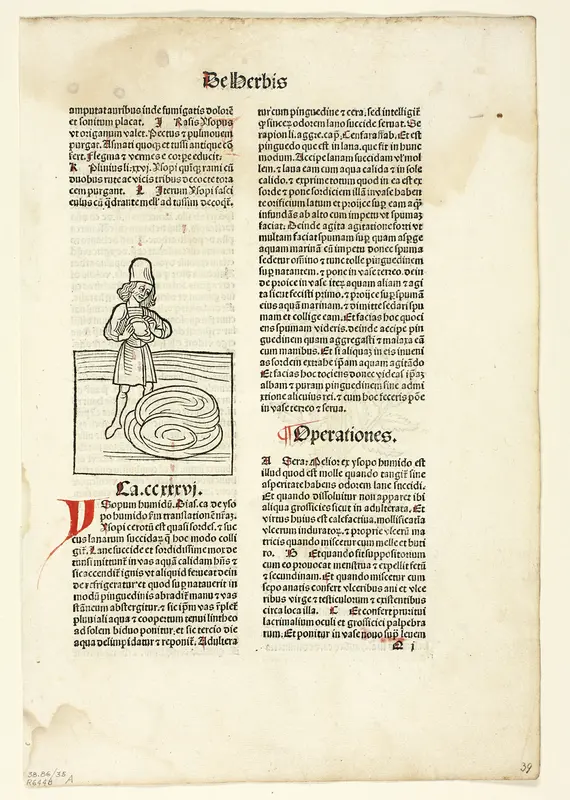 De Herbis
amputat auribus inde fumigatis dolorē
et sonitum placat. J Rasis Ysopus
vt origanum valet. Pectus ⁊ pulmonem
purgat. Asmati quoq̄ et tussi antique cō
fert. Flegma ⁊ vermes e corpe educit.
K Plinius li. xxvj. Ysopi quinq̄ rami cū
duobus rute ac vicis tribus decocte tora
cem purgant. L Iterum Ysopi fasci
culus cū q̄drante mell' ad tussim decoqt̄.
Ca. ccxxxvj.
YSopum humidū. Dias. ca. de yso
po humido
Ysopi cerotū est quasi sordes. ⁊ suc
cus lanarum succidaꝝ q̄ hoc modo colli
git̄. Lane succide et sordidissime mox de
tunsi mittunt̄ in vas aquā calidam hn̄s ⁊
sic accendit̄ ignis vt aliquid ferueat dein
de refrigeratur et quod sup̄ natauerit in
modū pinguedinis abradit̄ manu ⁊ vas
stāneum abstergitur. ⁊ sic ip̄m vas
pluuiali aqua ⁊ coopertum tenui lintheo
ad solem biduo ponitur. et sic tercio die
aqua delimpidatur ⁊ reponit̄. Adultera
tur cum pinguedine ⁊ cera. sed intelligit̄
q̄ sincerꝰ odorem lane succide seruat. Se
rapion li. aggre. cap̄. Est
pinguedo que est in lana. que fit in hunc
modum. Accipe lanam succidam vl' mol
lem. ⁊ laua eam cum aqua calida ⁊ in sole
calido. ⁊ exprime totum quod in ea est ex
sorde ⁊ pone sordiciem illā in vase haben
te orificium latum et proijce sup̄ eam aq̄ꝫ
infundās ab alto cum impetu vt spumaꝫ
faciat. Deinde agita agitatione forti vt
multam faciat spumam sup̄ quam asp̄ge
aquam marinā cū impetu donec spuma
sedetur om̄ino ⁊ tunc tolle pinguedinem
sup̄natantem. ⁊ pone in vase terreo. dein
de proice in vase iteꝝ aquam aliam ⁊ agi
ta sicut fecisti primo. ⁊ proijce sup̄ spumā
eius aquā marinam. ⁊ dimitte sedari spu
mam et collige eam. Et facias hoc quoci
ens spumam videris. deinde accipe pin
guedinem quam aggregasti ⁊ malaxa eā
cum manibus. Et si aliquaꝫ in eis inueni
as sordem extrahe ip̄am aquam agitādo
Et facias hoc tociens donec videas ip̄aꝫ
albam ⁊ puram pinguedinem sine admi
xtione alicuius rei. ⁊ cum hoc feceris pōe
in vase terreo ⁊ serua.
Operationes.
A Sera: Melior ex ysopo humido est
illud quod est molle quando tangit̄ sine
asperitate habens odorem lane succidi.
Et quando dissoluitur non apparet ibi
aliqua grossicies sicut in adulterata. Et
virtus huius est calefactiua. mollificatia
vlcerum induratoꝝ. ⁊ proprie vlcerū ma
tricis quando miscetur cum melle et buti
ro. B Et quando fit suppositorium
cum eo prouocat menstrua ⁊ expellit fetū
⁊ secundinam. Et quando miscetur cum
sepo anatis confert vlceribus ani et vlce
ribus virge ⁊ testiculorum ⁊ existentibus
circa loca illa. C Et confert pruritui
lacrimalium oculi et grossiciei palpebra
rum. Et ponitur in vase nouo sup̄ leuem
Q j
38.86/35
R6446 A
39